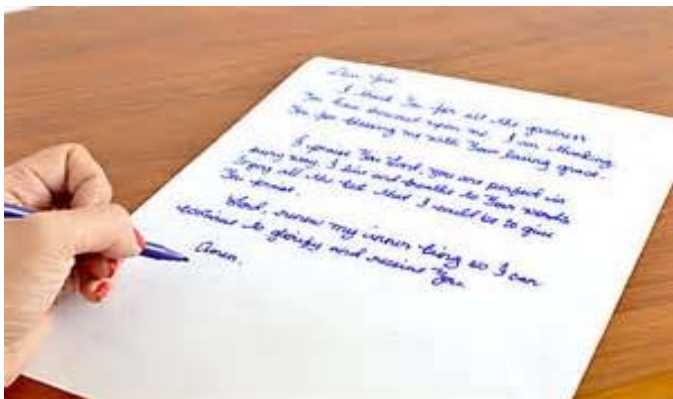 Dear God,
I thank You for all the goodness
You have showered upon me. I am thanking
You for blessing me with Your loving grace.
I praise You Lord, you are perfect in
every way. I live and breathe to Your words
all the that I could be to give
You praise.
Lord, renew my inner being so I can
continue to glorify and receive You
Amen.